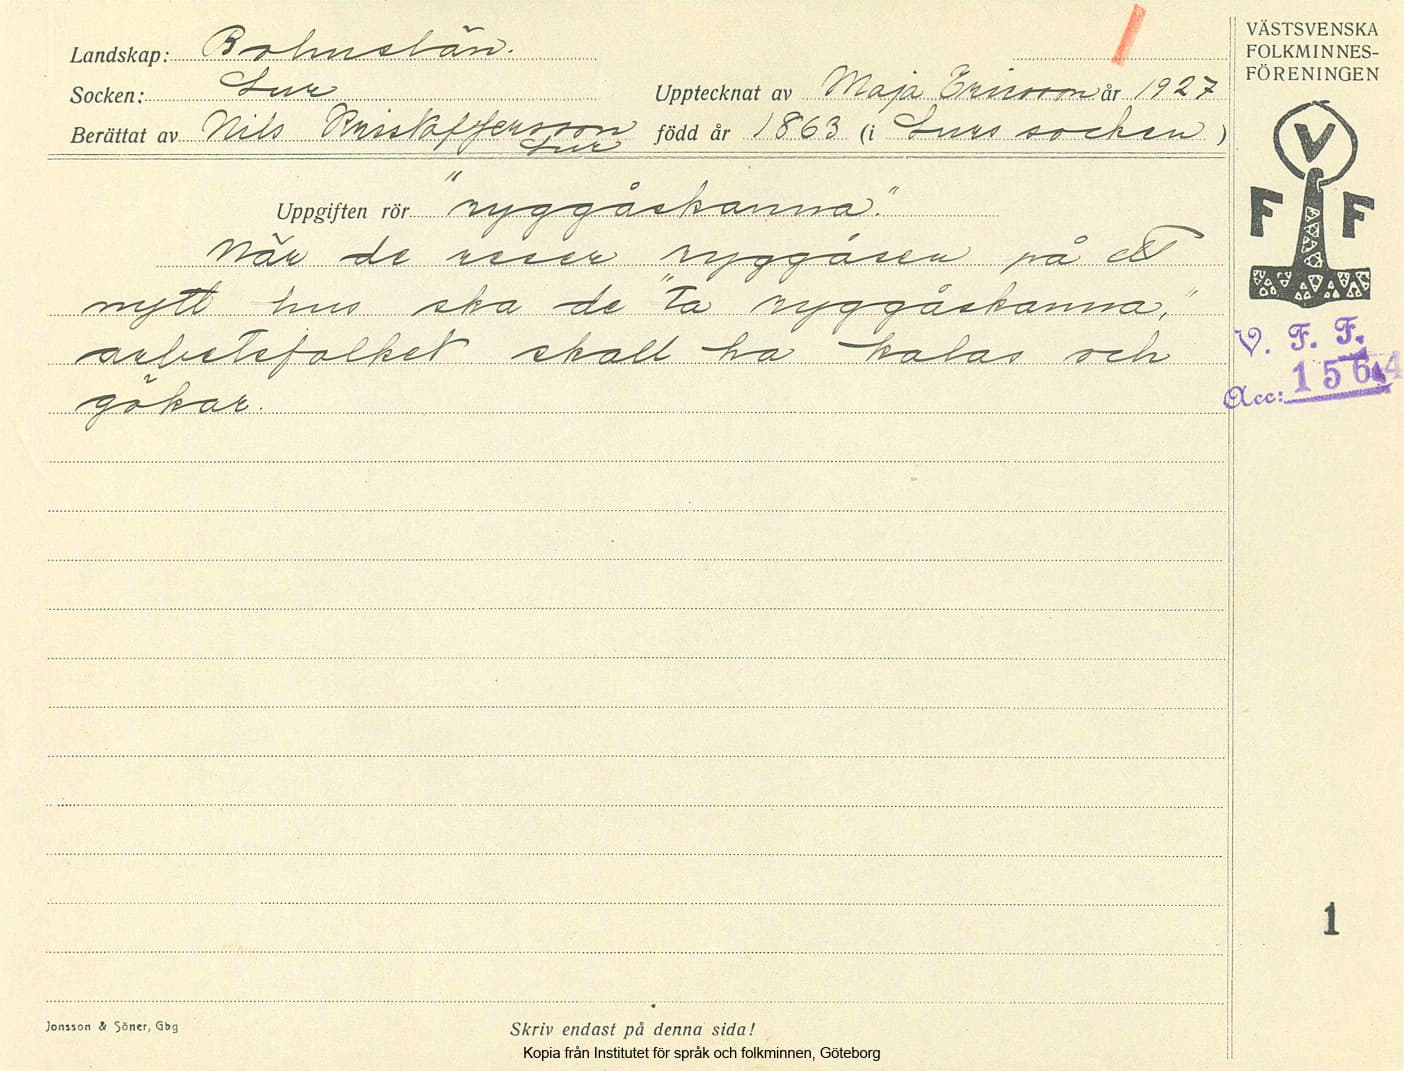 Landskap: Bohuslän.
Socken: Lur
Upptecknat av Maja Ericsson år 1927
Berättat av Nils Kristoffersson
Lur
född år 1863 (i Lurs socken)
Uppgiften rör "ryggåskanna."
När de reser ryggåsen på ett
nytt hus ska de "ta ryggåskanna,"
arbetsfolket skall ha kalas och
gökar.
VÄSTSVENSKA
FOLKMINNES-
FÖRENINGEN
V
F F
V. F. F.
Acc: 1564
1
Jonsson & Söner, Gbg
Skriv endast på denna sida!
Kopia från Institutet för språk och folkminnen, Göteborg